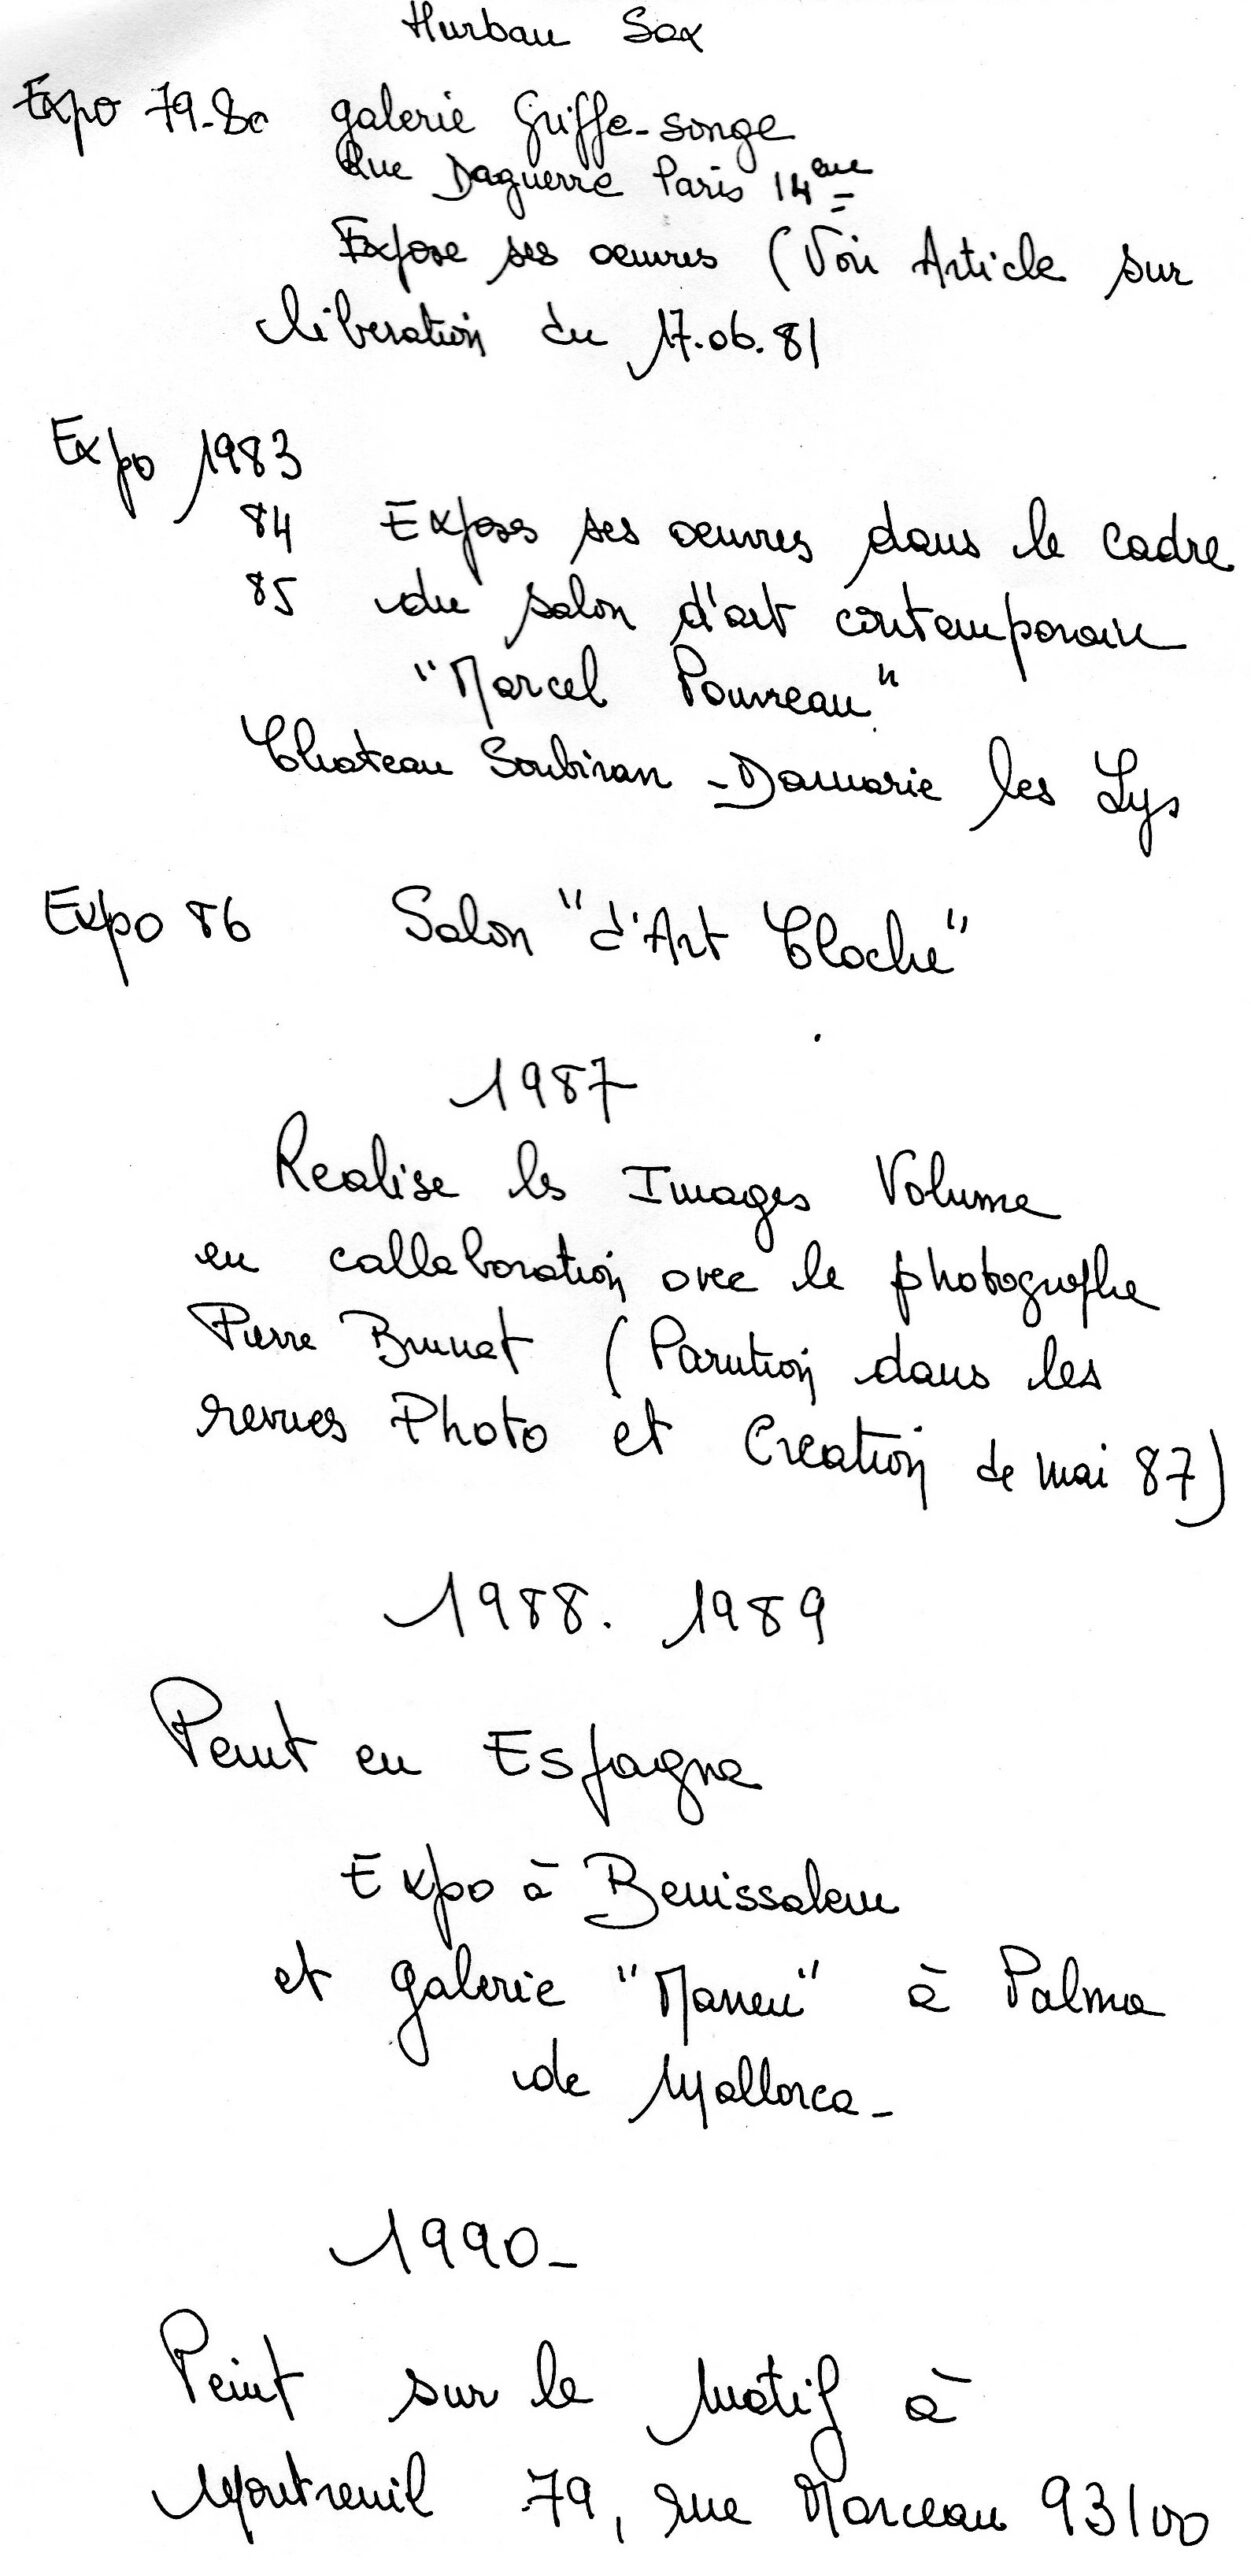 Hurban Sax
Expo 79-80 galerie Griffe-songe
Rue Daguerre Paris 14eme
Expose ses oeuvres (Voir Article sur
liberation du 17.06.81
Expo 1983
84 Expose ses oeuvres dans le cadre
85 du salon d'art contemporain
"Marcel Pouvreau"
Chateau Soubiran - Damarie les Lys
Expo 86 Salon "d'Art Cloche"
1987
Realise les Images Volume
en collaboration avec le photographe
Pierre Brunet (Parution dans les
revues Photo et Creation de mai 87)
1988. 1989
Peint en Espagne
Expo à Benissalem
et galerie "Maneu" à Palma
de Mallorca -
1990 -
Peint sur le Motif à
Montreuil 79, rue Marceau 93100